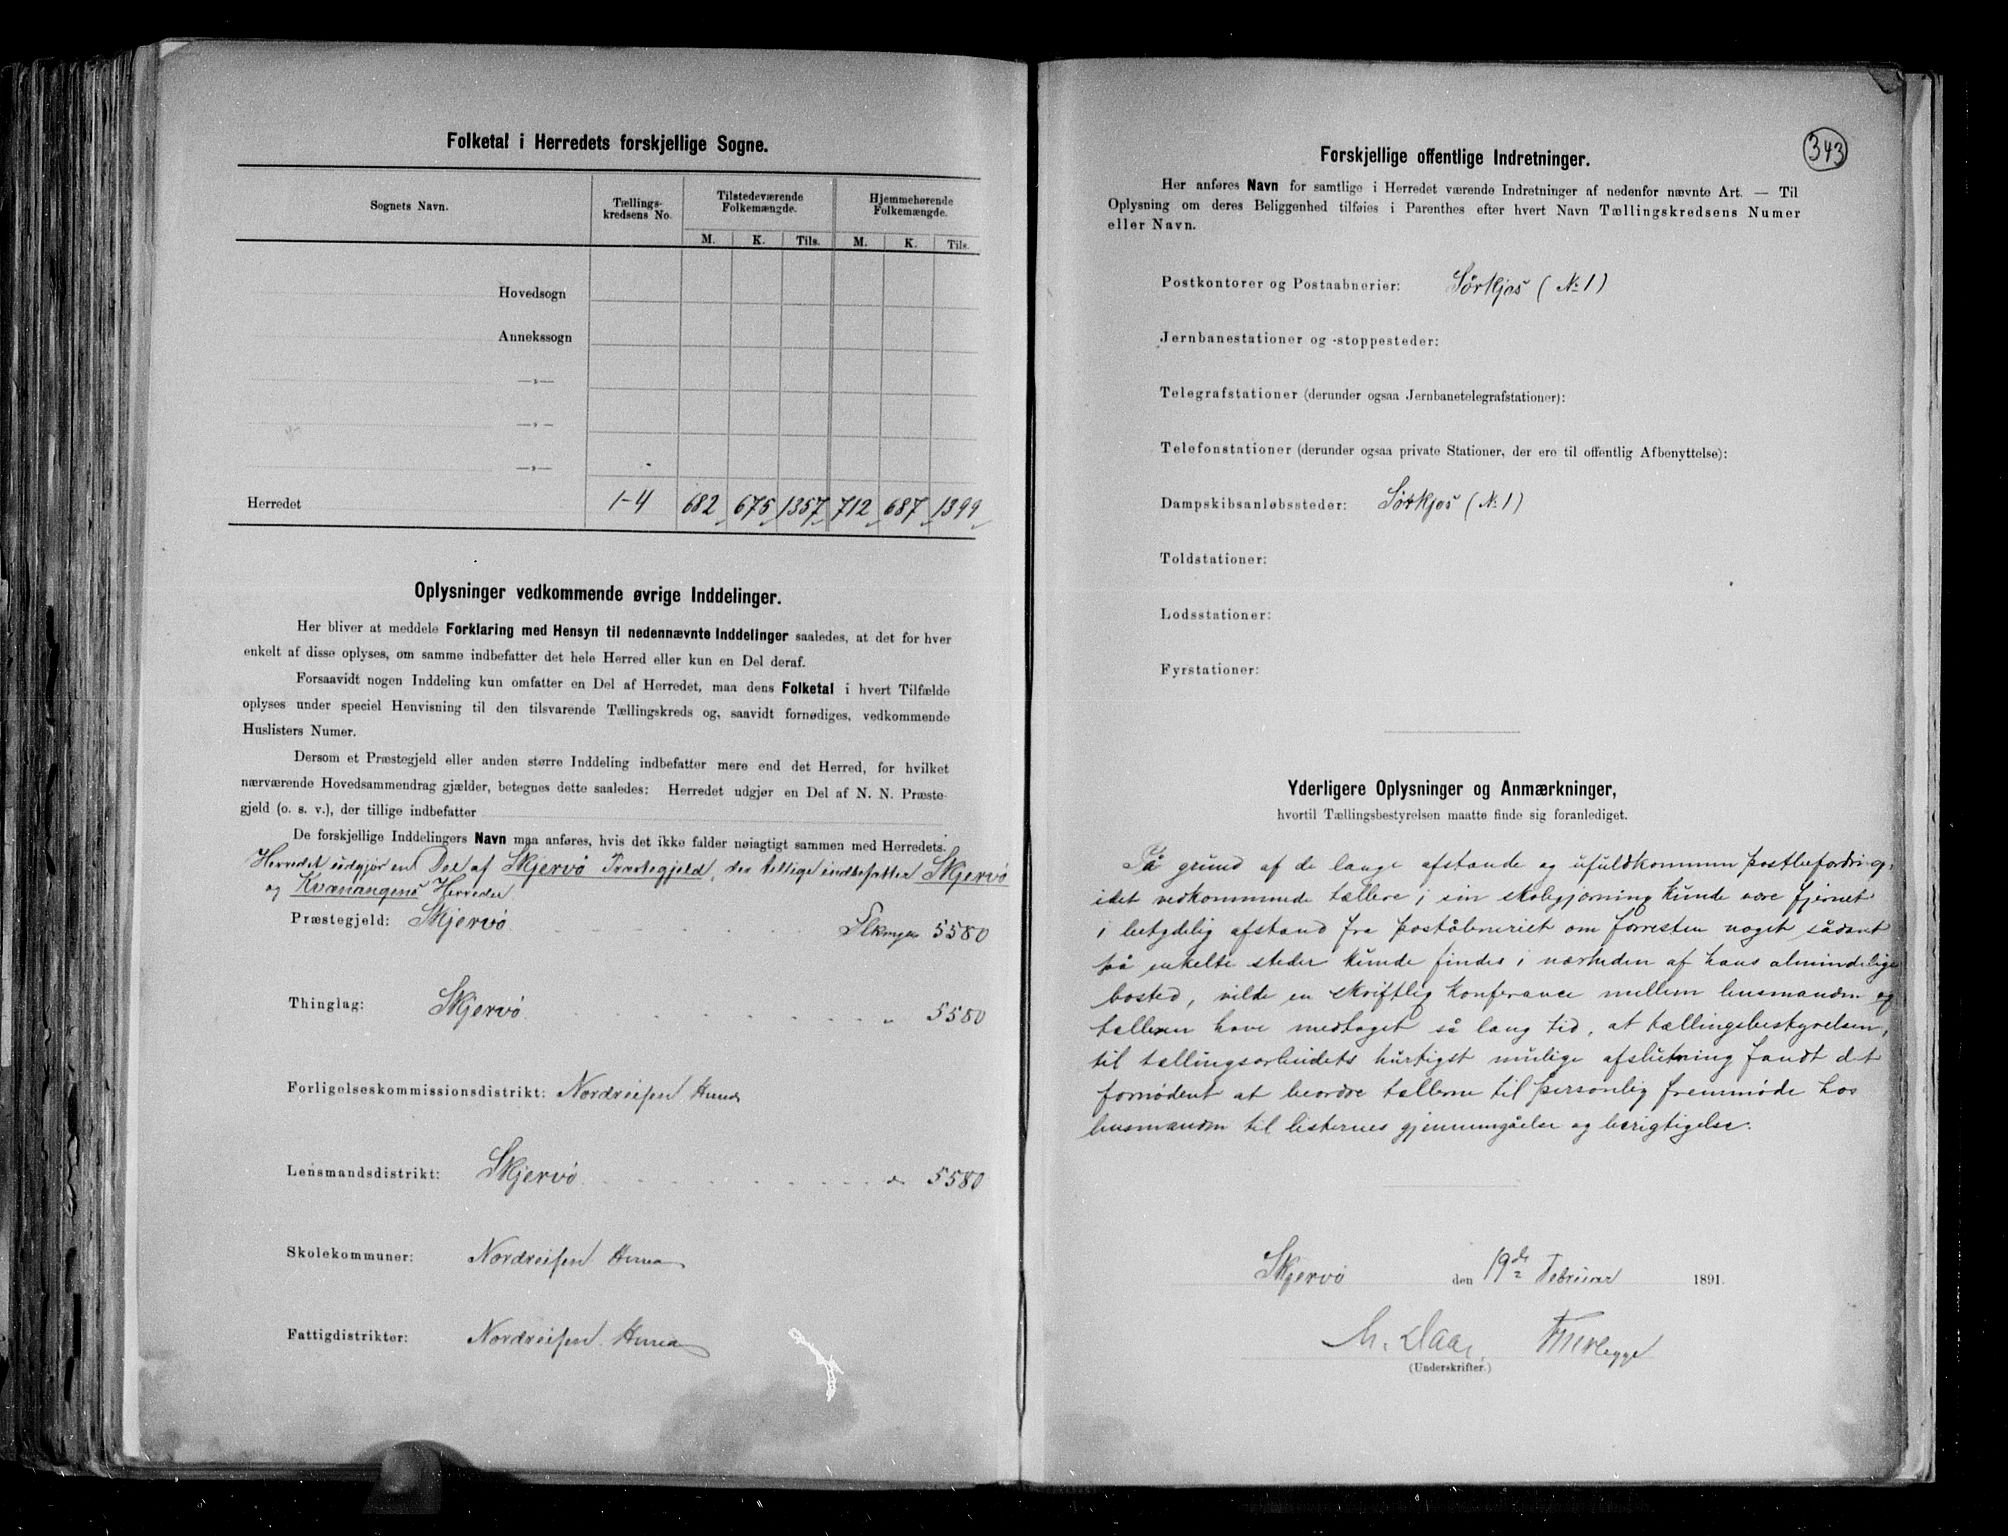 Folketal i Herredets forskjellige Sogne.
Sognets Navn.
Tællings-
kredsens No.
Tilstedeværende
Folkemængde.
Hjemmehørende
Folkemængde.
M. K. Tils. M. K. Tils.
Hovedsogn
Annekssogn
—„—
—„—
—„—
Herredet 1-4 682 675 1357 712 687 1399
Oplysninger vedkommende øvrige Inddelinger.
Her bliver at meddele Forklaring med Hensyn til nedennævnte Inddelinger saaledes, at det for hver
enkelt af disse oplyses, om samme indbefatter det hele Herred eller kun en Del deraf.
Forsaavidt nogen Inddeling kun omfatter en Del af Herredet, maa dens Folketal i hvert Tilfælde
oplyses under speciel Henvisning til den tilsvarende Tællingskreds og, saavidt fornødiges, vedkommende
Huslisters Numer.
Dersom et Præstegjeld eller anden større Inddeling indbefatter mere end det Herred, for hvilket
nærværende Hovedsammendrag gjælder, betegnes dette saaledes: Herredet udgjør en Del af N. N. Præste-
gjeld (o. s. v.), der tillige indbefatter
De forskjellige Inddelingers Navn maa anføres, hvis det ikke falder nøiagtigt sammen med Herredets.
Herredet udgjør en Del af Skjervö Præstegjeld, der tillige indbefatter Skjervö
og Kvænangens Herreder
Præstegjeld: Skjervö 5580
Thinglag: Skjervö „ 5580
Forligelseskommissionsdistrikt: Nordreisen
Lensmandsdistrikt: Skjervö 5580
Skolekommuner: Nordreisen
Fattigdistrikter: Nordreisen
343
Forskjellige offentlige Indretninger.
Her anføres Navn for samtlige i Herredet værende Indretninger af nedenfor nævnte Art. — Til
Oplysning om deres Beliggenhed tilføies i Parenthes efter hvert Navn Tællingskredsens Numer
eller Navn.
Postkontorer og Postaabnerier: Sørkjos (No 1)
Jernbanestationer og -stoppesteder:
Telegrafstationer (derunder ogsaa Jernbanetelegrafstationer):
Telefonstationer (derunder ogsaa private Stationer, der ere til offentlig Afbenyttelse):
Dampskibsanløbssteder: Sørkjos (No 1)
Toldstationer:
Lodsstationer:
Fyrstationer:
Yderligere Oplysninger og Anmærkninger,
hvortil Tællingsbestyrelsen maatte finde sig foranlediget.
På grund af de lange afstande og ufuldkommen postbefordring,
idet vedkommende tællere i sin skobgjörning kunde være fjernet
i betydelig afstand fra poståbneriet om forresten noget sådant
på enkelte steder kunde findes i nærheden af hans almindelige
bosted, vilde en skriftlig konferance mellem husmanden og
tælleren have medtaget så lang tid, at tællingsbestyrelsen,
til tællingsarbeidets hurtigst mulige afslutning fandt det
fornödent at beordre tællerne til personlig fremmöde hos
husmanden til listernes gjennemgåelse og berigtigelse.
Skjervö den 19de Februar 1891.
M. Daae
(Underskrifter.)